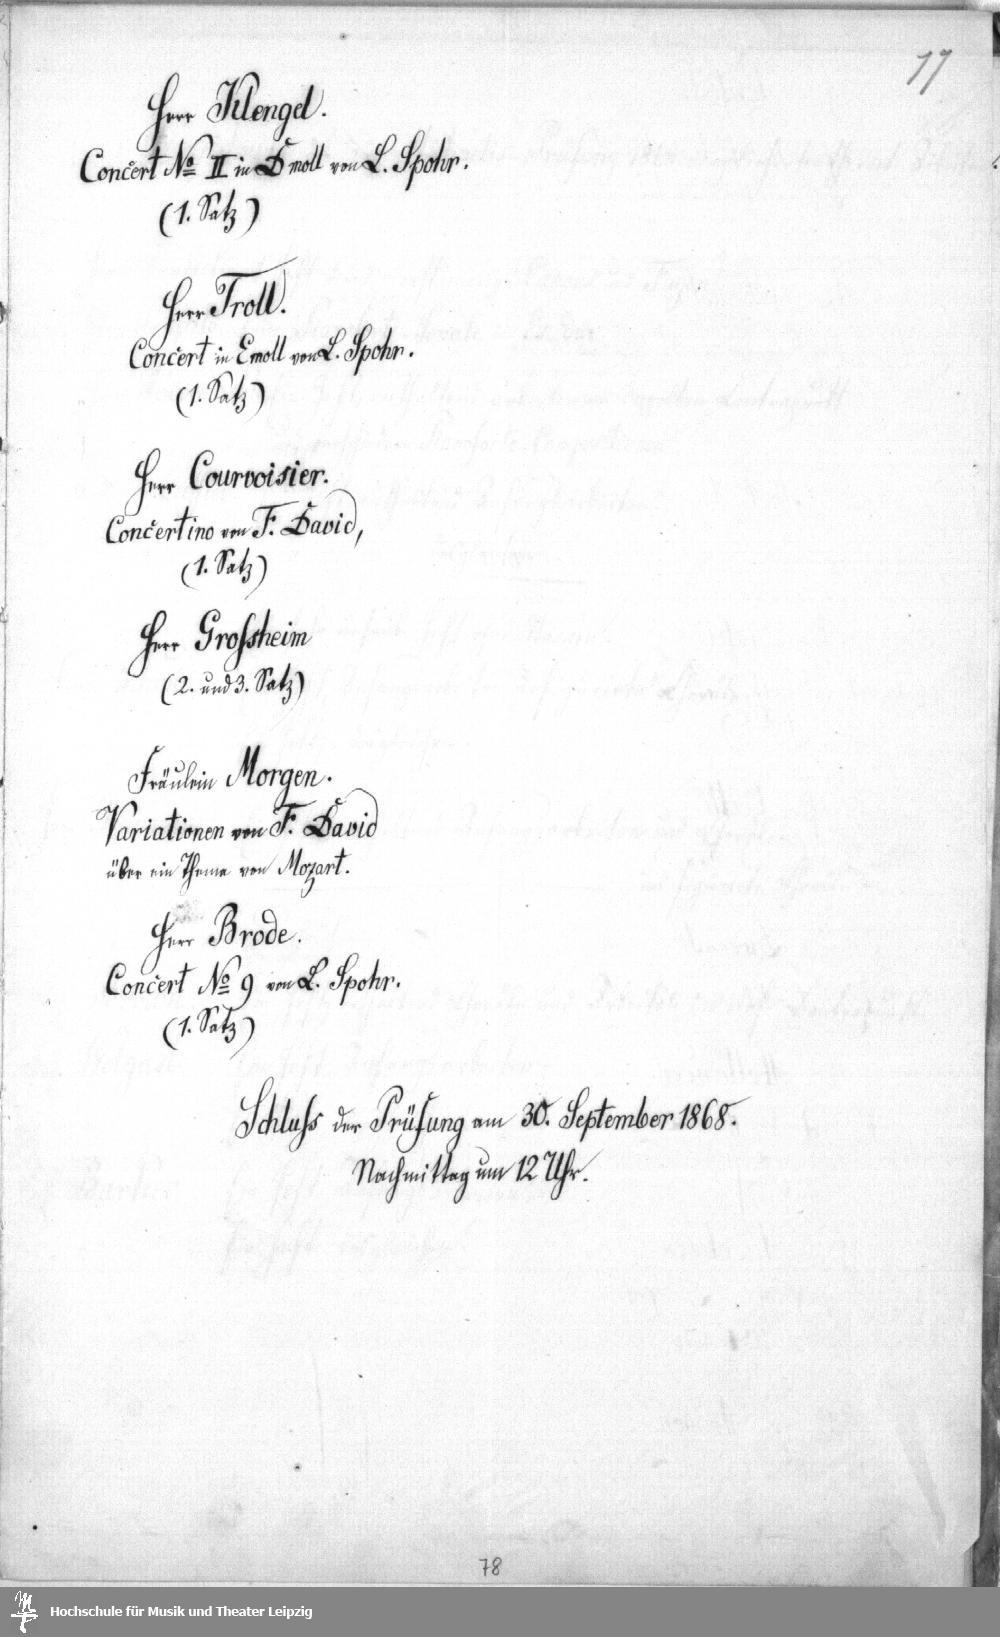 77
Herr Klengel.
Concert No II in D moll von L. Spohr.
(1. Satz)
Herr Troll.
Concert in Emoll von L. Spohr.
(1. Satz)
Herr Courvoisier.
Concertino von F. David,
(1. Satz)
Herr Grossheim
(2. und 3. Satz)
Fräulein Morgen.
Variationen von F. David
über ein Thema von Mozart.
Herr Brode.
Concert No 9 von L. Spohr.
(1. Satz)
Schluss der Prüfung am 30. September 1868.
Nachmittag um 12 Uhr.
78
Hochschule für Musik und Theater Leipzig